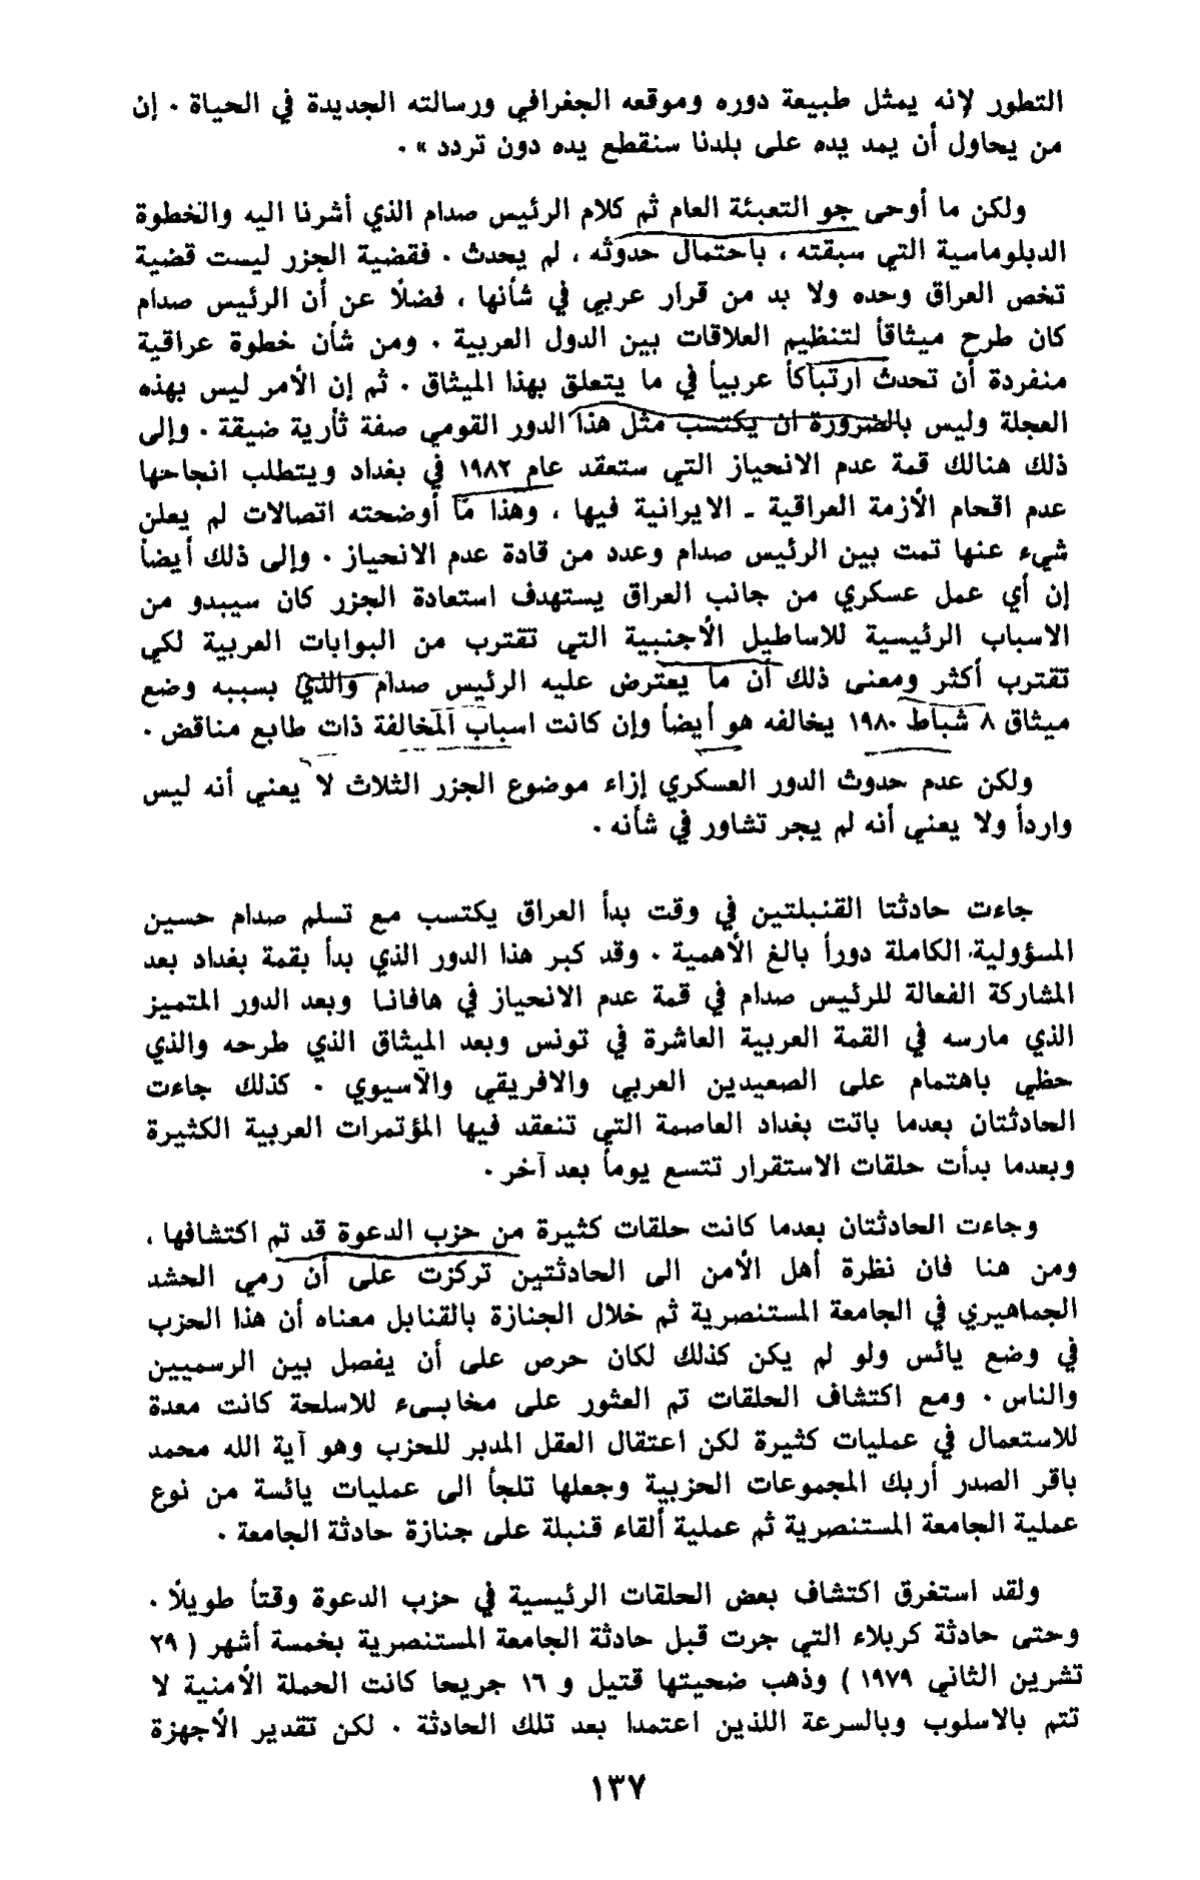 التطور لإنه يمثل طبيعة دوره وموقعه الجغرافي ورسالته الجديدة في الحياة . إن
من يحاول أن يمد يده على بلدنا سنقطع يده دون تردد » .
ولكن ما أوحى جو التعبئة العام ثم كلام الرئيس صدام الذي أشرنا اليه والخطوة
الدبلوماسية التي سبقته ، باحتمال حدوثه ، لم يحدث . فقضية الجزر ليست قضية
تخص العراق وحده ولا بد من قرار عربي في شأنها ، فضلاً عن أن الرئيس صدام
كان طرح ميثاقاً لتنظيم العلاقات بين الدول العربية . ومن شأن خطوة عراقية
منفردة أن تحدث ارتباكاً عربياً في ما يتعلق بهذا الميثاق . ثم إن الأمر ليس بهذه
العجلة وليس بالضرورة ان يكتسب مثل هذا الدور القومي صفة ثأرية ضيقة . وإلى
ذلك هنالك قمة عدم الانحياز التي ستعقد عام ١٩٨٢ في بغداد ويتطلب انجاحها
عدم اقحام الأزمة العراقية ـ الايرانية فيها ، وهذا ما أوضحته اتصالات لم يعلن
شيء عنها تمت بين الرئيس صدام وعدد من قادة عدم الانحياز . وإلى ذلك أيضاً
إن أي عمل عسكري من جانب العراق يستهدف استعادة الجزر كان سيبدو من
الاسباب الرئيسية للاساطيل الأجنبية التي تقترب من البوابات العربية لكي
تقترب أكثر ومعنى ذلك أن ما يعترض عليه الرئيس صدام والذي بسببه وضع
ميثاق ٨ شباط ١٩٨٠ يخالفه هو أيضاً وإن كانت اسباب المخالفة ذات طابع مناقض .
ولكن عدم حدوث الدور العسكري إزاء موضوع الجزر الثلاث لا يعني أنه ليس
وارداً ولا يعني أنه لم يجر تشاور في شأنه .
جاءت حادثتا القنبلتين في وقت بدأ العراق يكتسب مع تسلم صدام حسين
المسؤولية الكاملة دوراً بالغ الأهمية . وقد كبر هذا الدور الذي بدأ بقمة بغداد بعد
المشاركة الفعالة للرئيس صدام في قمة عدم الانحياز في هافانا وبعد الدور المتميز
الذي مارسه في القمة العربية العاشرة في تونس وبعد الميثاق الذي طرحه والذي
حظي باهتمام على الصعيدين العربي والافريقي والآسيوي . كذلك جاءت
الحادثتان بعدما باتت بغداد العاصمة التي تنعقد فيها المؤتمرات العربية الكثيرة
وبعدما بدأت حلقات الاستقرار تتسع يوماً بعد آخر .
وجاءت الحادثتان بعدما كانت حلقات كثيرة من حزب الدعوة قد تم اكتشافها ،
ومن هنا فان نظرة أهل الأمن الى الحادثتين تركزت على أن رمي الحشد
الجماهيري في الجامعة المستنصرية ثم خلال الجنازة بالقنابل معناه أن هذا الحزب
في وضع يائس ولو لم يكن كذلك لكان حرص على أن يفصل بين الرسميين
والناس . ومع اكتشاف الحلقات تم العثور على مخابىء للاسلحة كانت معدة
للاستعمال في عمليات كثيرة لكن اعتقال العقل المدبر للحزب وهو آية الله محمد
باقر الصدر أربك المجموعات الحزبية وجعلها تلجأ الى عمليات يائسة من نوع
عملية الجامعة المستنصرية ثم عملية ألقاء قنبلة على جنازة حادثة الجامعة .
ولقد استغرق اكتشاف بعض الحلقات الرئيسية في حزب الدعوة وقتاً طويلاً .
وحتى حادثة كربلاء التي جرت قبل حادثة الجامعة المستنصرية بخمسة أشهر ( ٢٩
تشرين الثاني ١٩٧٩ ) وذهب ضحيتها قتيل و ١٦ جريحا كانت الحملة الأمنية لا
تتم بالاسلوب وبالسرعة اللذين اعتمدا بعد تلك الحادثة . لكن تقدير الأجهزة
١٣٧